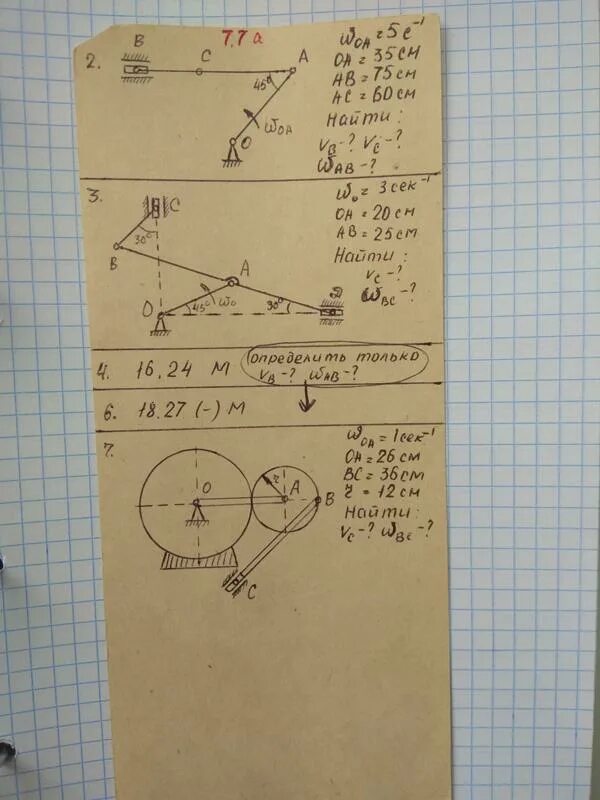 7.7 а
2.
B
C
A
45°
ω_OA
O
ω_OA = 5 c⁻¹
OA = 35 см
AB = 75 см
AC = 60 см
Найти:
v_B-? v_C-?
ω_AB-?
3.
C
30°
B
A
O
45°
ω₀
30°
D
ω₀ = 3 сек⁻¹
OA = 20 см
AB = 25 см
Найти:
v_C-?
ω_BC-?
4. 16.24 М
определить только
v_B-? ω_AB-?
6. 18.27 (-) М
7.
O
r
A
B
C
ω_OA = 1 сек⁻¹
OA = 26 см
BC = 36 см
r = 12 см
Найти:
v_C-? ω_BC-?